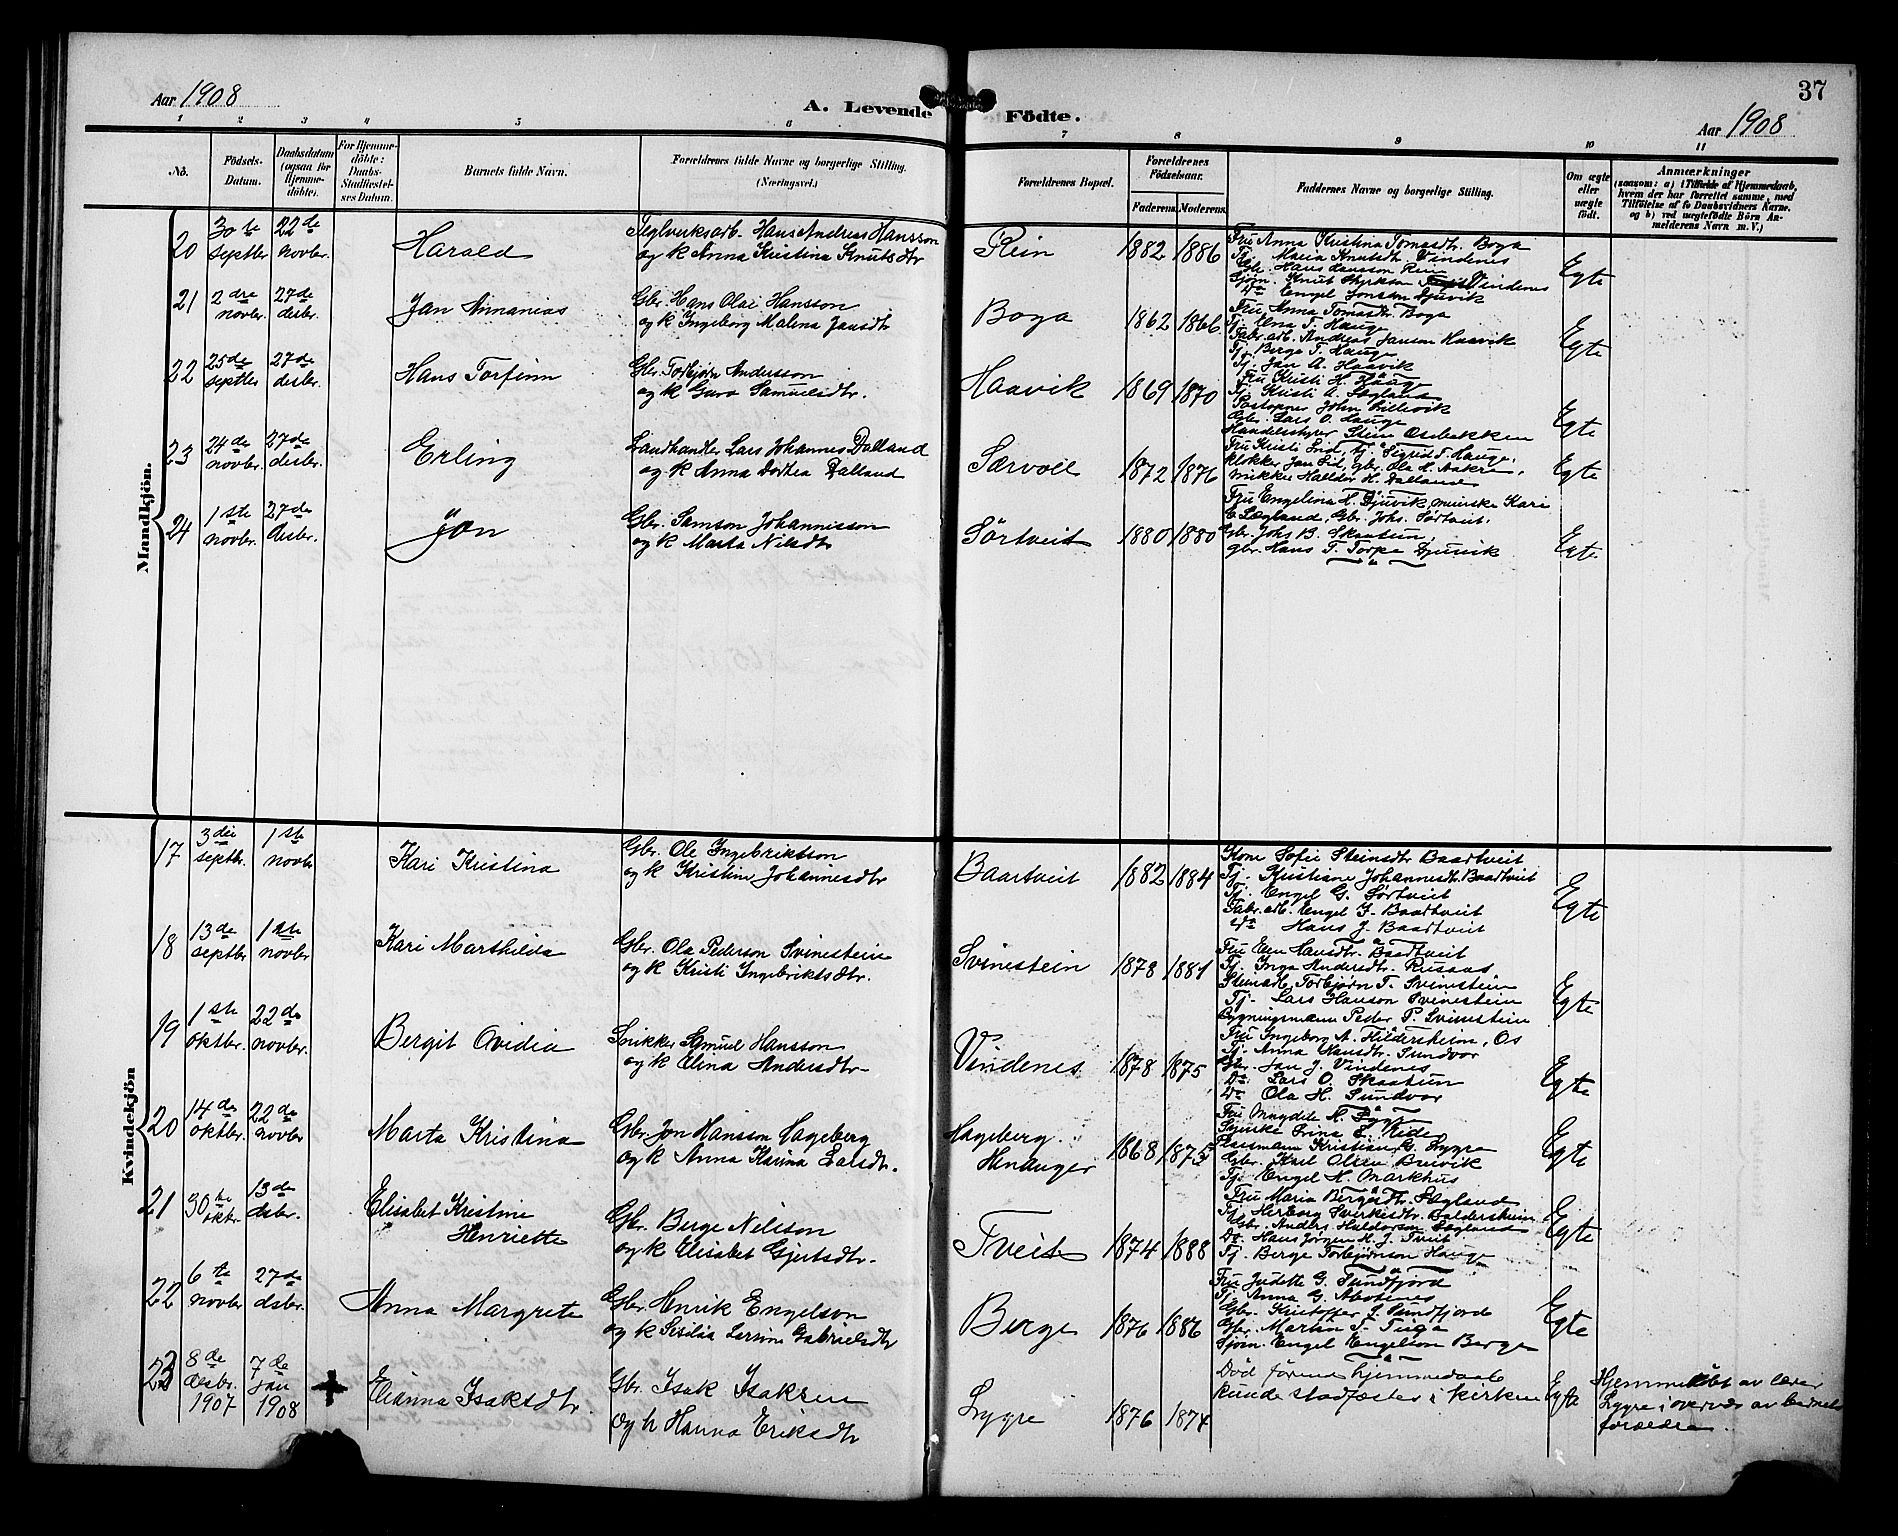 37
Aar 1908
A. Levende Födte.
Aar 1908
1 2 3 4 5 6 7 8 9 10 11
No.
Födsels-Datum.
Daabsdatum (ogsaa for Hjemmedöbte).
For Hjemmedöbte: Daabs-Stadfæstelses Datum.
Barnets fulde Navn.
Forældrenes fulde Navne og borgerlige Stilling. (Næringsvei.)
Forældrenes Bopæl.
Forældrenes Födselsaar.
Faderens. Moderens.
Faddernes Navne og borgerlige Stilling.
Om ægte eller uægte födt.
Anmærkninger
(saasom: a) i Tilfælde af Hjemmedaab, hvem der har forrettet samme, med Tilföielse af to Daabsvidners Navne, og b) ved uægtefödte Börn Anmelderens Navn m. V.)
Mandkjön.
20 30te septbr 22de novbr. Harald
Teglverksarb. Hans Andreas Hansson
og k Anna Kristina Knutsdtr
Rein 1882 1886
Fru Anna Kristina Tomasdtr. Boga
Tj. Maria Knutsdtr. Vindenes
Gbr. Hans Hansson Rein
Sjøm. Knut Styrkson Vindenes
Do Engel Jonson Djuvik
Egte
21 2dre novbr. 27de desbr. Jan Annanias
Gbr. Hans Olai Hansson
og k Ingeborg Malena Jansdtr
Boga 1862 1866
Fru Anna Tomasdtr Boga
Tj. Elna T. Hauge
Fabr. arb. Andreas Janson Haavik
Tj. Berge T. Hauge
Tj. Jan A. Haavik
Egte
22 25de septbr 27de desbr. Hans Torfinn
Gbr. Torbjørn Andersson
og k Guro Samuelsdtr.
Haavik 1869 1870
Fru Kristi H. Hauge
Tj. Kristi A. Sægland
Postopner John Lillevik
Gbr. Lars O. Hauge
Handelsstyrer Stein Øsebakken
Egte
23 24de novbr. 27de desbr. Erling
Landhandler Lars Johannes Dalland
og k Anna Dortea Dalland
Særvoll 1872 1876
Fru Kristi Eid, tj. Sigrid T. Hauge,
klokker Jan Eid, gbr. Ola H. Aakre,
snikker Halldor H. Dalland
Egte
24 1ste novbr. 27de desbr. Jon
Gbr. Samson Johannesson
og k Marta Nilsdtr
Sørtveit 1880 1880
Fru Engelina H. Djuvik, pienike Kari
E Sægland, Gbr. Johs. Sørtveit,
Gbr. Johs B. Skaatun,
gbr. Hans T. Torpe Djuvik
Egte
Kvindekjön
17 3die septbr. 1ste novbr Kari Kristina
Gbr. Ole Ingebriktson
og k Kristine Johannesdtr
Baartveit 1882 1884
Kone Sofie Steinsdtr Baadtveit
Tj. Kristiane Johannesdtr. Baadtveit
Tj. Engel G. Sørtveit
Fabr. arb. Engel J. Baadtveit
Do Hans J. Baadtveit
Egte
18 13de septbr 1ste novbr Kari Marthilda
Gbr. Ola Pederson Svinestein
og k Kristi Ingebriktsdtr.
Svinestein 1878 1881
Fru Elen Hansdtr. Baadtveit
Tj. Inga Andersdtr. Rusaas
Steinarb. Torbjørn T. Svinestein
Tj. Lars Hanson Svinestein
Bygningsmann Peder P. Svinestein
Egte
19 1ste oktbr. 22de novbr. Bergit Ovidia
Snikker Samuel Hansson
og k Elina Andersdtr.
Vindenes 1878 1875
Fru Ingeborg A. Hildersheim, Os
Tj. Anna Hansdtr. Sundvor
Gbr. Jan J. Vindenes
Do Lars O. Skaatun
Do Ola H. Sundvor
Egte
20 14de oktbr. 22de novbr Marta Kristina
Gbr. Jon Hansson Hageberg
og k Anna Karina Larsdtr.
Hageberg. Henanger 1868 1875
Fru Magdele M. Lygre
Pjenike Trina E. Eide
Plassmann Kristian G. Lygre
Gbr. Karl Olsen Breivik
Tj. Engel H. Markhus
Egte
21 30te oktr. 13de dsbr. Elisabet Kristine Henriette
Gbr. Berge Nilsson
og k Elisabet Gjertsdtr.
Tveit 1874 1888
Fru Maria Bergesdtr. Sægland
Tj. Herborg Sverkesdtr. Baldersheim
Gbr. Anders Haldorson Sægland
Do Hans Jørgen H. J. Tveit
Tj. Berge Torbjørnson Hauge
Egte
22 6te novbr 27de dsbr. Anna Margrete
Gbr. Henrik Engelson
og k Sesilia Lervine Gabrielsdtr
Berge 1876 1886
Fru Judette G. Sundfjord
Tj. Anna G.
Gbr. Kristoffer J. Sundfjord
Gbr. Martin T. Teigo
Sjøm. Engel Engelson Berge
Egte
23 8de desbr. 1907 7de jan 1908 + Elianna Isaksdtr.
Gbr. Isak Isaksen
og h Hanna Eriksdtr
Lygre 1876 1874
Død førenn hjemmedaab
kunde stadfæstes i kirken
Egte
Hjemmedøbt av lærer
Lygre i overvær av barnets
forældre.